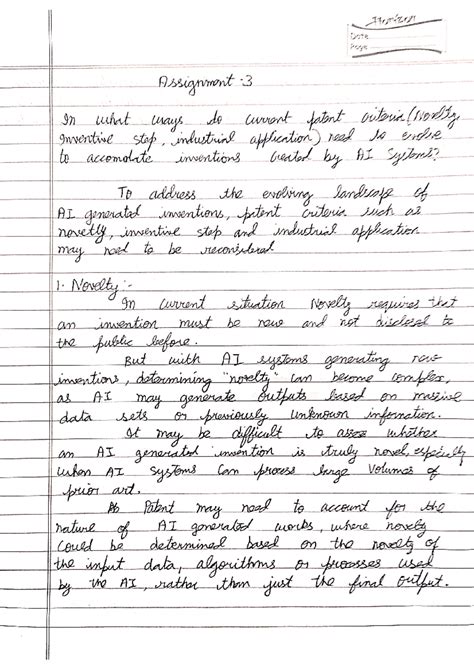 Date
Page
Assignment :3
In what ways do current patent criteria (Novelty,
Inventive step, industrial application) need to evolve
to accomolate inventions created by AI systems?
To address the evolving landscape of
AI generated inventions, patent criteria such as
novetly, inventive step and industrial application
may need to be reconsidered
1. Novelty :-
In current situation Novelty requires that
an invention must be new and not disclosed to
the public before.
But with AI systems generating new
inventions, determining "novelty" can become complex,
as AI may generate outputs based on massive
data sets or previously unknown information.
It may be difficult to asses whether
an AI generated invention is truly novel, especially
when AI systems can process large volumes of
prior art.
Patent may need to account for the
nature of AI generated works, where novelty
could be determined based on the novelty of
the input data, algorithms or processes used
by the AI, rather than just the final output.